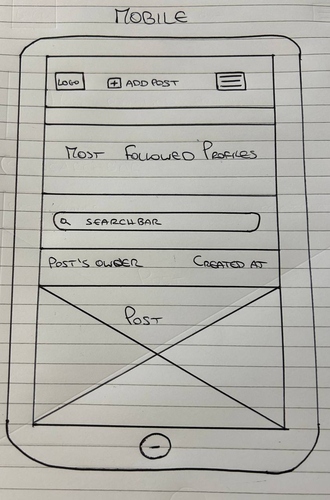 MOBILE
LOGO + ADD POST
MOST FOLLOWED PROFILES
SEARCHBAR
POST'S OWNER CREATED AT
POST